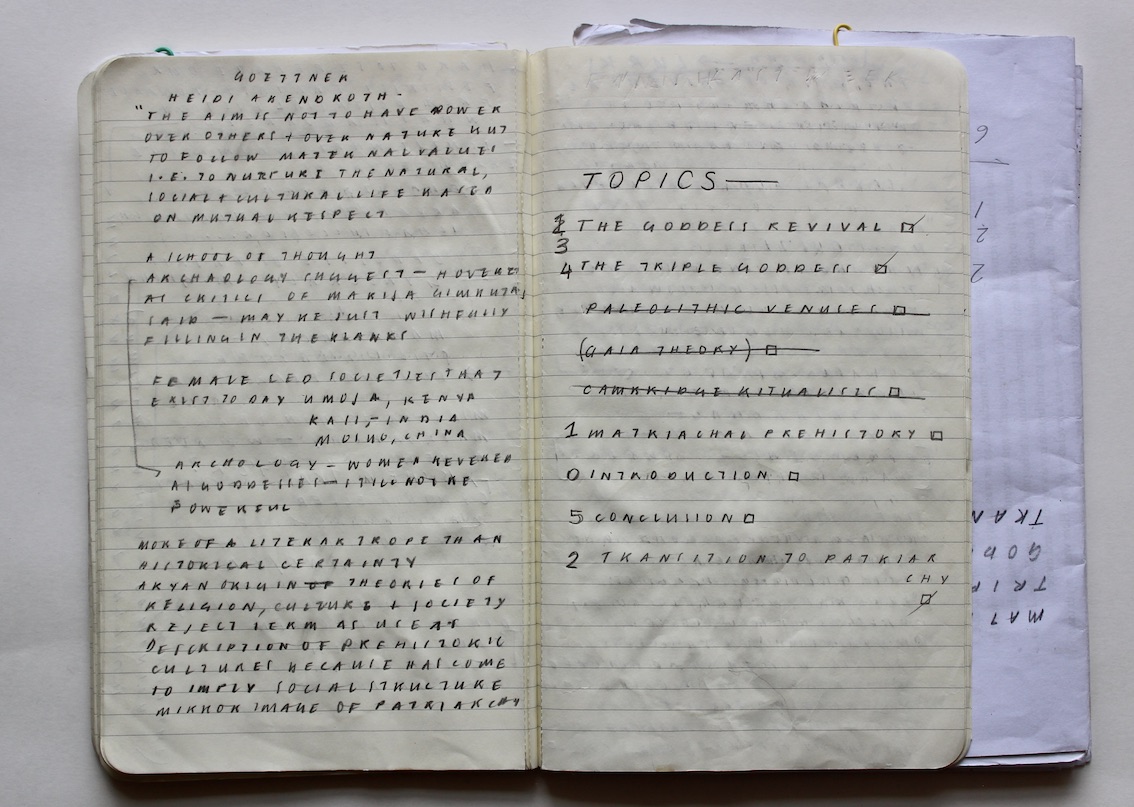 GOETTNER
HEIDI ABENDROTH-
"THE AIM IS NOT TO HAVE POWER
OVER OTHERS + OVER NATURE BUT
TO FOLLOW MATERNAL VALUES
I.E. TO NURTURE THE NATURAL,
SOCIAL + CULTURAL LIFE BASED
ON MUTUAL RESPECT
A SCHOOL OF THOUGHT
ARCHAOLOGY SUGGEST - HOVEVER
AS CRITICS OF MARIJA GIMBUTAS
SAID - MAY BE JUST WISHFULLY
FILLING IN THE BLANKS
FEMALE LED SOCIETIES THAT
EXIST TODAY UMOJA, KENYA
INDIA
MOSUO, CHINA
ARCHOLOGY - WOMEN REVERED
AS GODDESSES - STILL NOT BE
POWERFUL
MORE OF A LITERAR TROPE THAN
HISTORICAL CERTAINTY
ARYAN ORIGIN OF THEORIES OF
RELIGION, CULTURE + SOCIETY
REJECT TERM AS USE AS
DESCRIPTION OF PREHISTORIC
CULTURES BECAUSE HAS COME
TO IMPLY SOCIAL STRUCTURE
MIRROR IMAGE OF PATRIARCHY
TOPICS—
THE GODDESS REVIVAL
3
4 THE TRIPLE GODDESS
PALEOLITHIC VENUSES
(GAIA THEORY)
CAMBRIDGE RITUALISTS
1 MATRIACHAL PREHISTORY
0 INTRODUCTION
5 CONCLUSION
2 TRANSITION TO PATRIAR
CHY
6
1
2
2
TRAN
GOD
TRIP
MAT